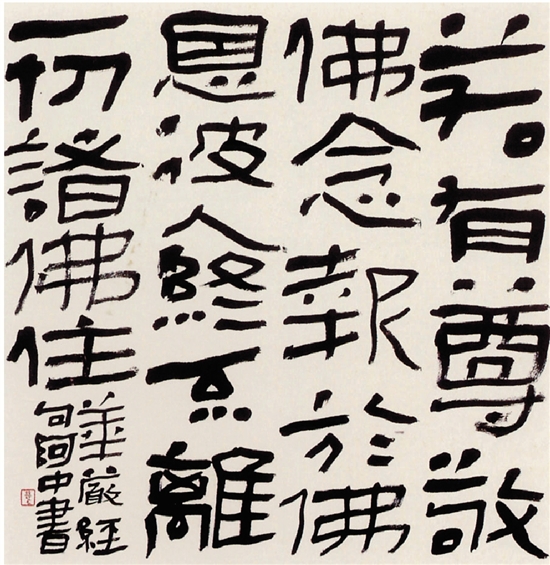 若有尊敬
佛念報於佛
恩彼人終不離
一切諸佛住
華嚴經
句阿中書